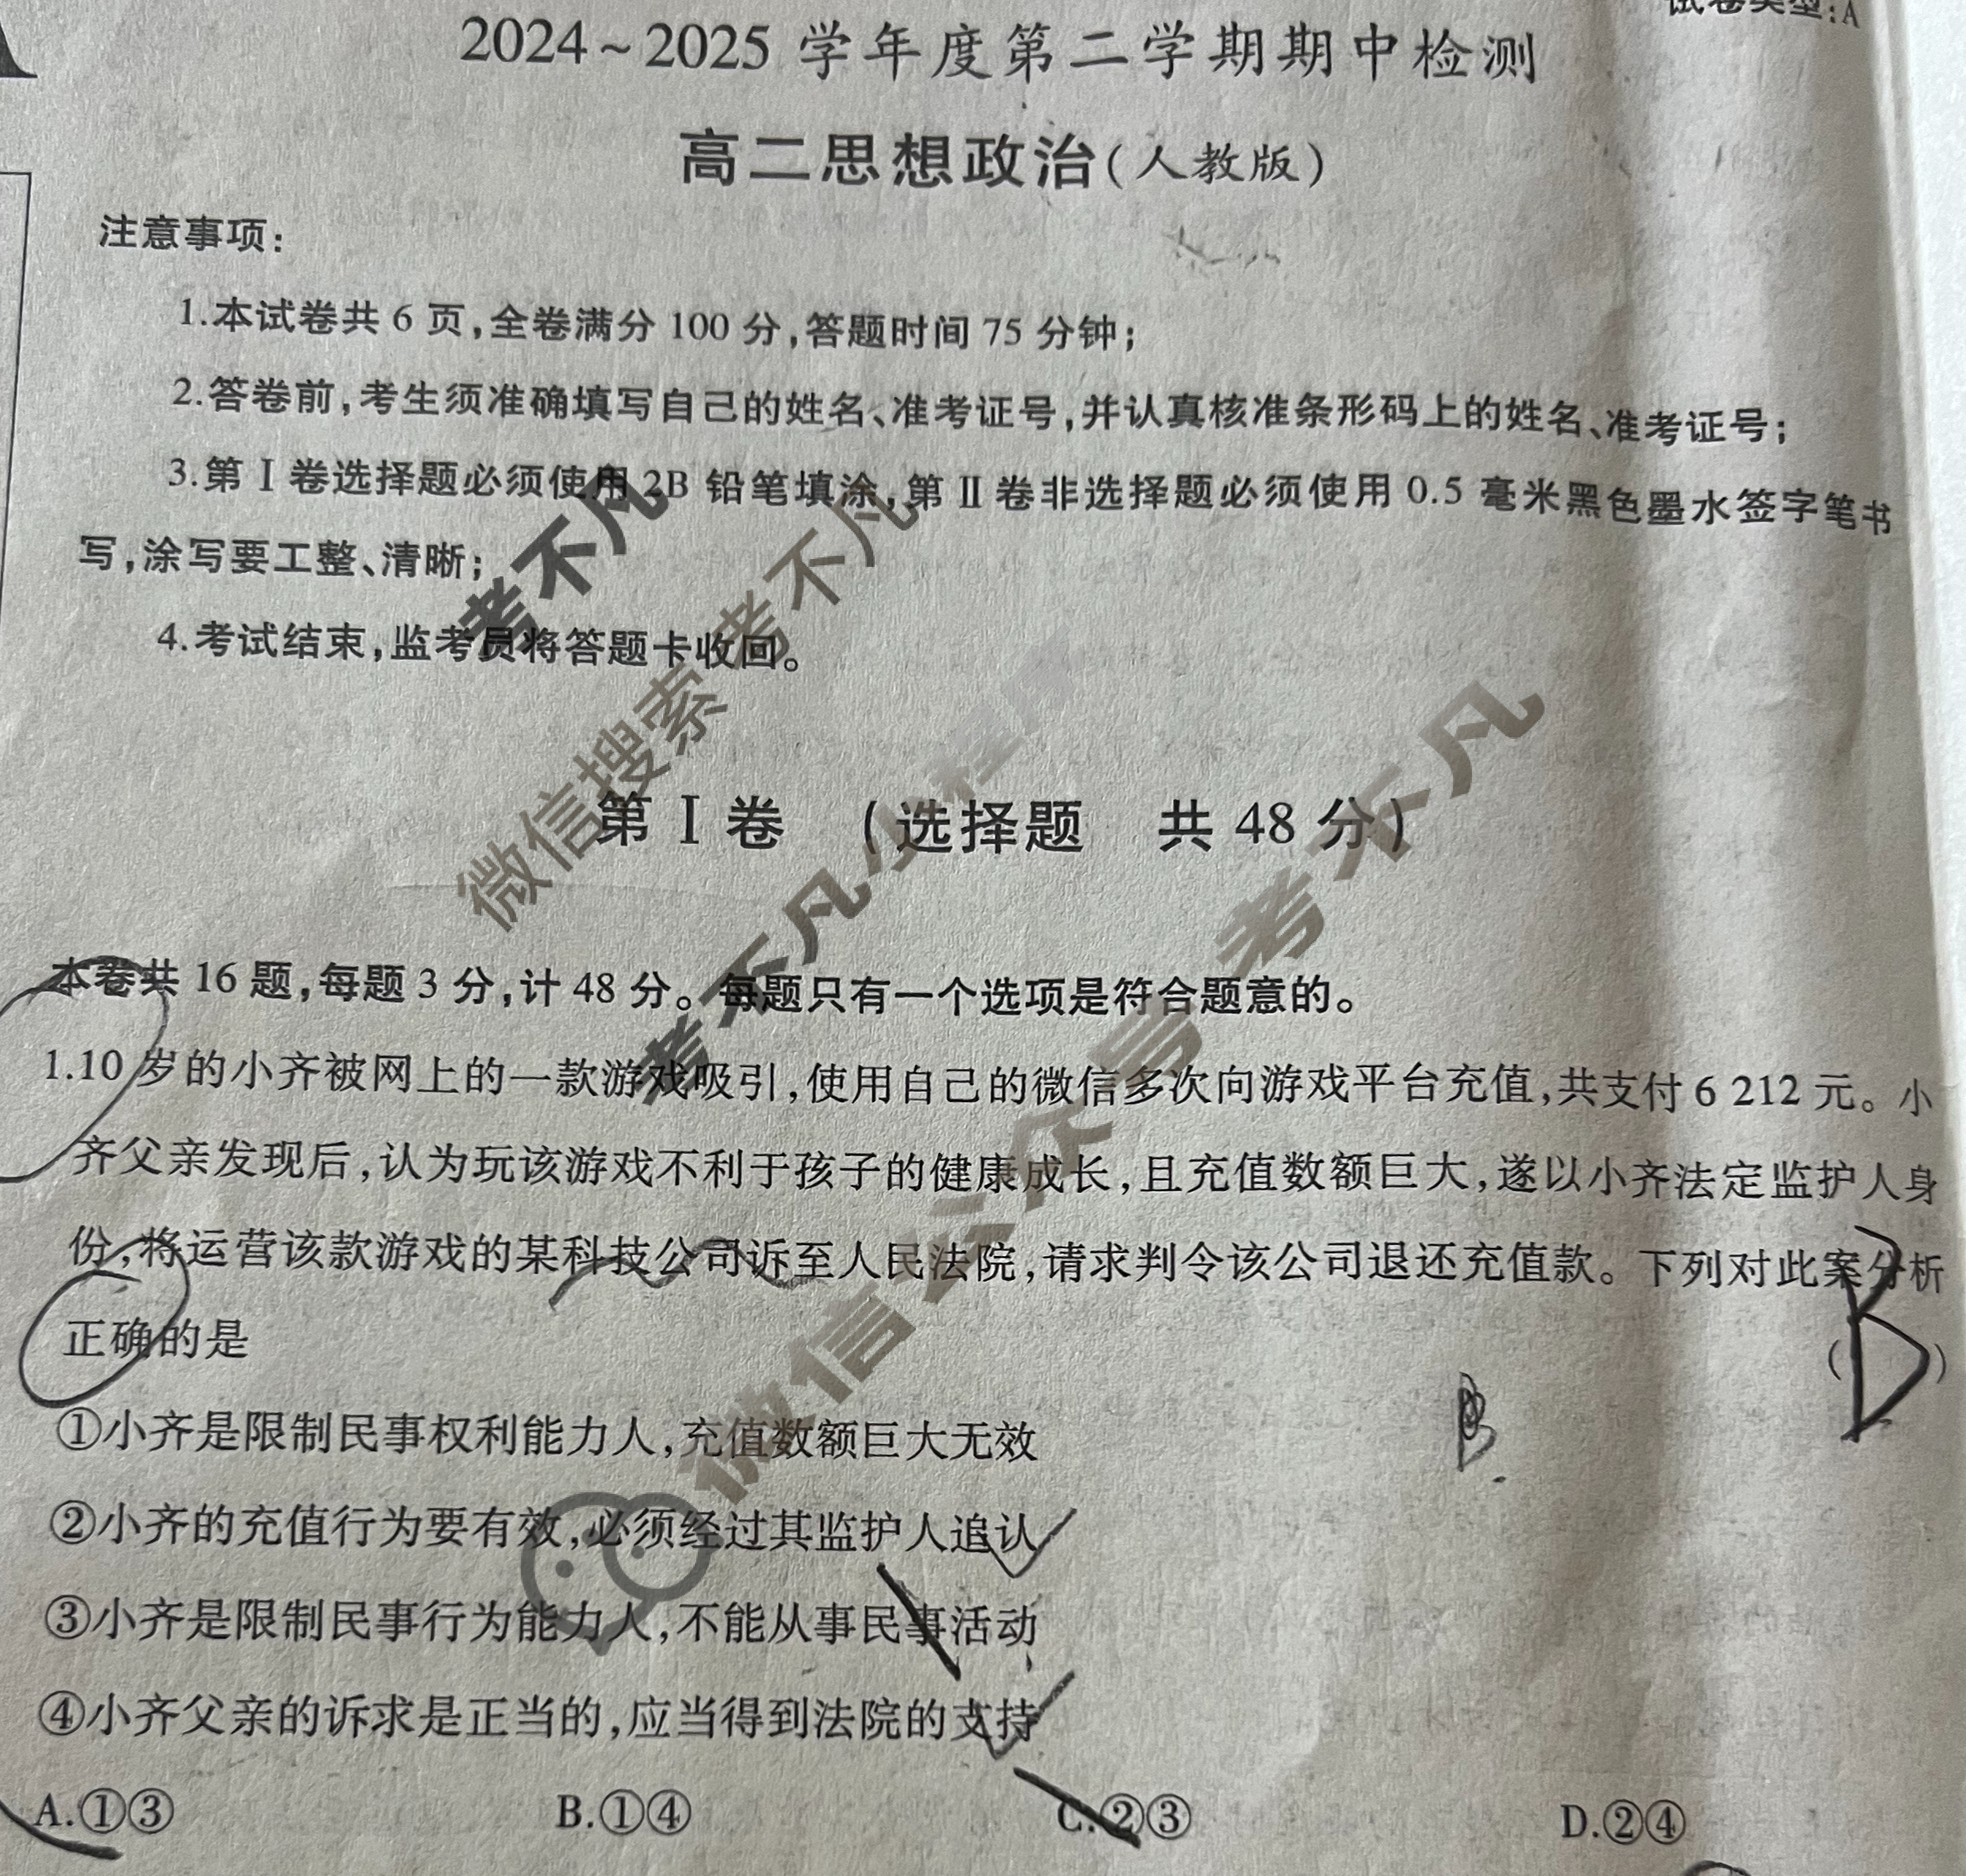 试卷类型:A
2024~2025 学年度第二学期期中检测
高二思想政治(人教版)
注意事项:
1.本试卷共 6 页,全卷满分 100 分,答题时间 75 分钟;
2.答卷前,考生须准确填写自己的姓名、准考证号,并认真核准条形码上的姓名、准考证号;
3.第Ⅰ卷选择题必须使用 2B 铅笔填涂,第Ⅱ卷非选择题必须使用 0.5 毫米黑色墨水签字笔书
写,涂写要工整、清晰;
4.考试结束,监考员将答题卡收回。
考不凡
微信搜索 考不凡
第Ⅰ卷 (选择题 共 48 分)
考不凡小程序
微信公众号 考不凡
本卷共 16 题,每题 3 分,计 48 分。每题只有一个选项是符合题意的。
1.10 岁的小齐被网上的一款游戏吸引,使用自己的微信多次向游戏平台充值,共支付 6 212 元。小
齐父亲发现后,认为玩该游戏不利于孩子的健康成长,且充值数额巨大,遂以小齐法定监护人身
份,将运营该款游戏的某科技公司诉至人民法院,请求判令该公司退还充值款。下列对此案分析
正确的是 ( )
①小齐是限制民事权利能力人,充值数额巨大无效
②小齐的充值行为要有效,必须经过其监护人追认
③小齐是限制民事行为能力人,不能从事民事活动
④小齐父亲的诉求是正当的,应当得到法院的支持
A.①③ B.①④ C.②③ D.②④